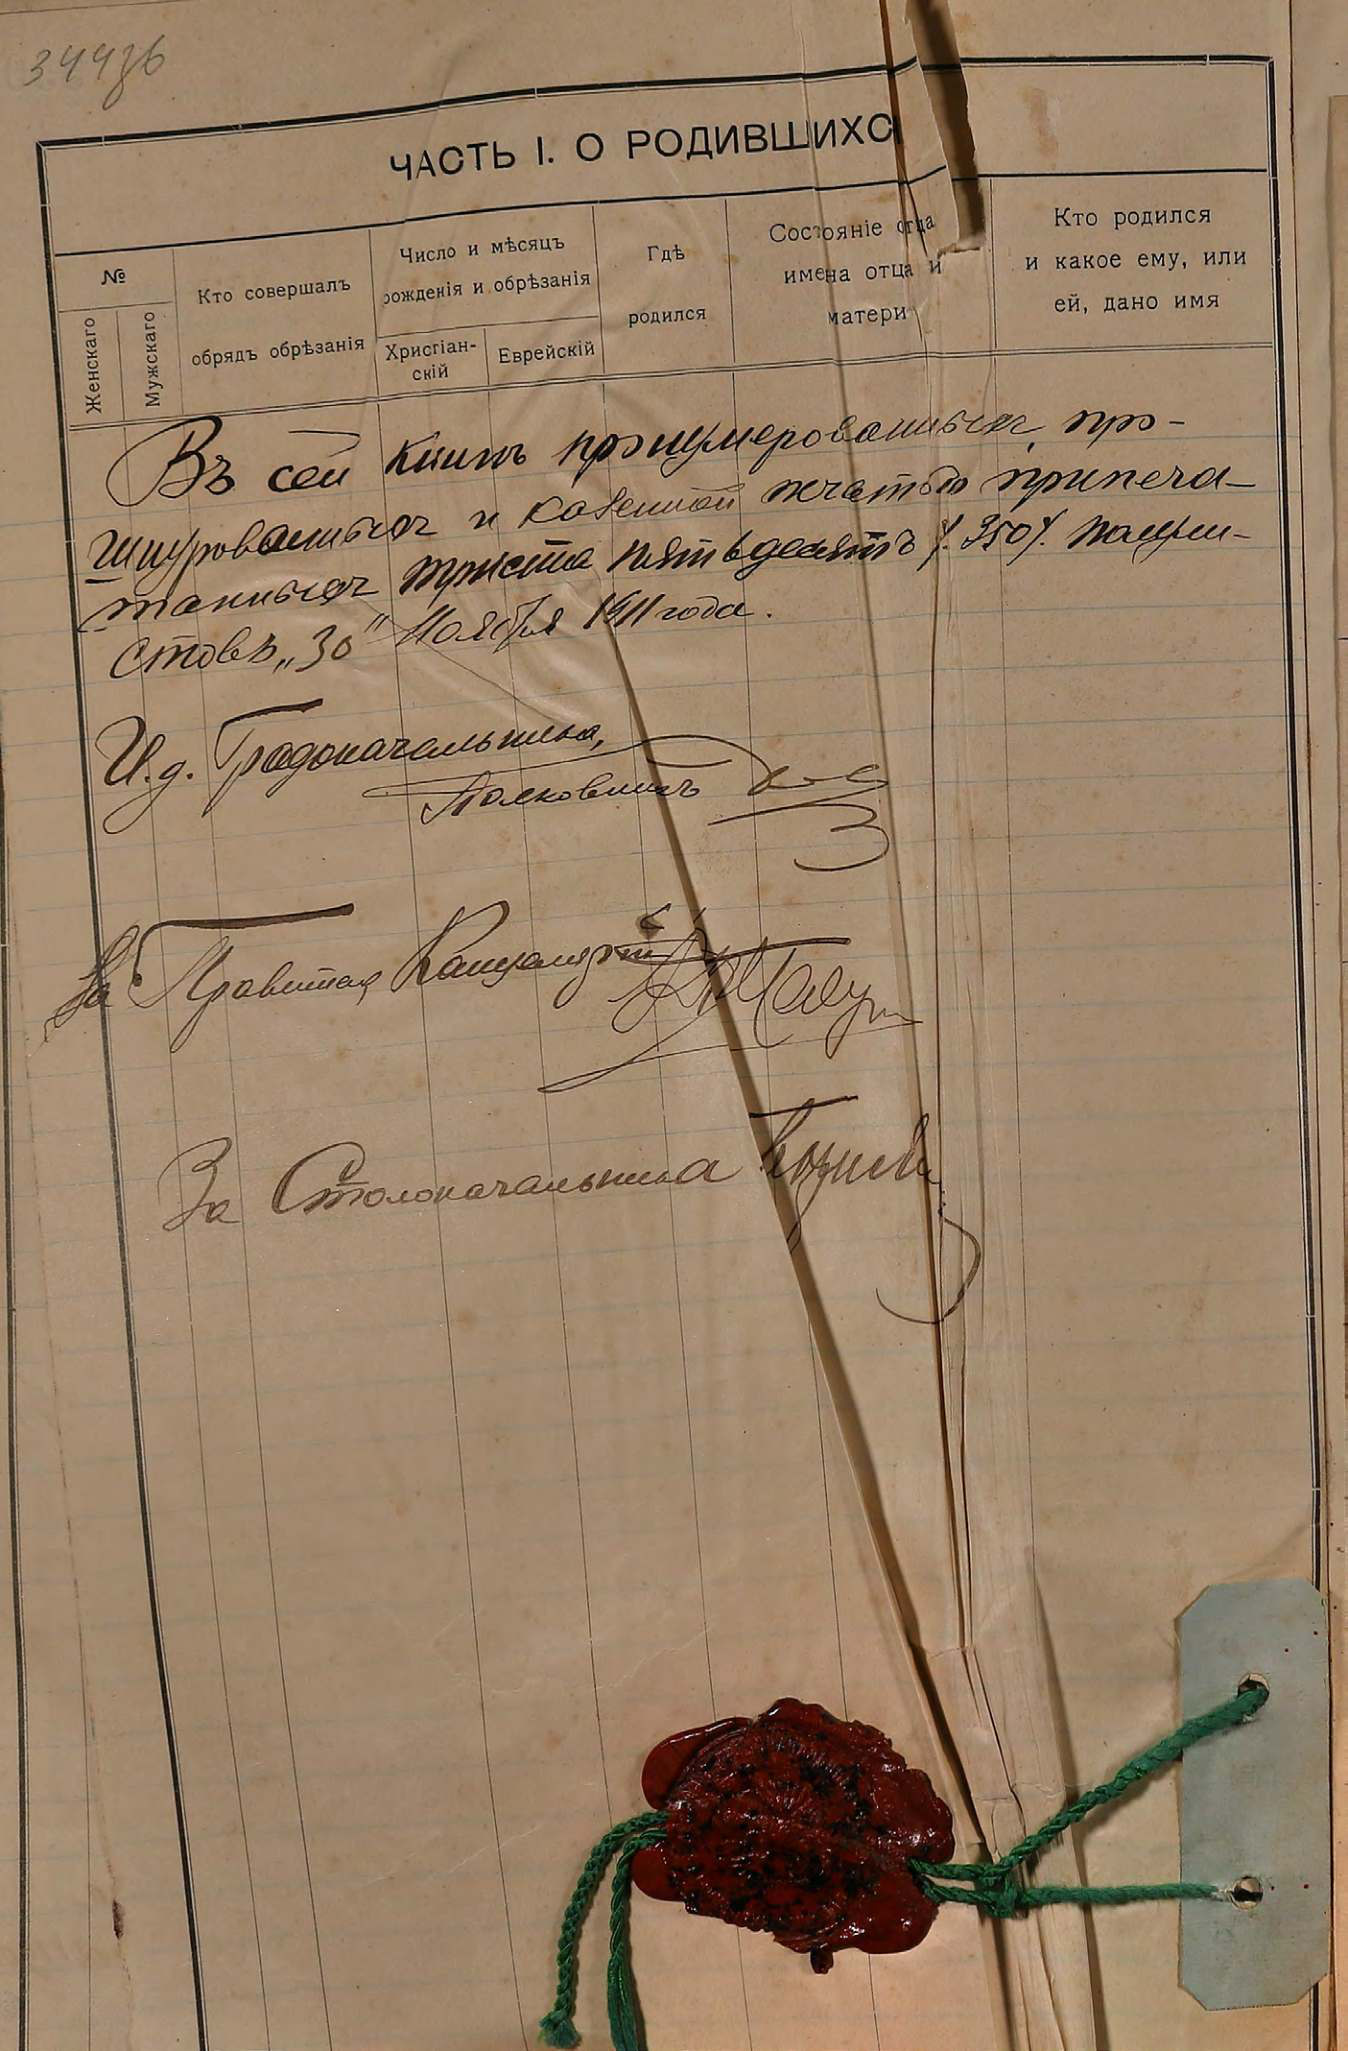 ЧАСТЬ I. О РОДИВШИХС
№
Женскаго
Мужскаго
Кто совершалъ
обрядъ обрѣзанія
Число и мѣсяцъ
рожденія и обрѣзанія
Христіан-
скій
Еврейскій
Гдѣ
родился
Состояніе отца
имена отца и
матери
Кто родился
и какое ему, или
ей, дано имя
Въ сей книгѣ пронумерованныхъ, про-
шнурованныхъ и казенной печатью припеча-
танныхъ триста пятьдесятъ /. 350 /. полули-
стовъ „30" Ноября 1911 года.
И.д. Градоначальника,
Полковникъ
За Правителя Канцеляріи
За Столоначальника